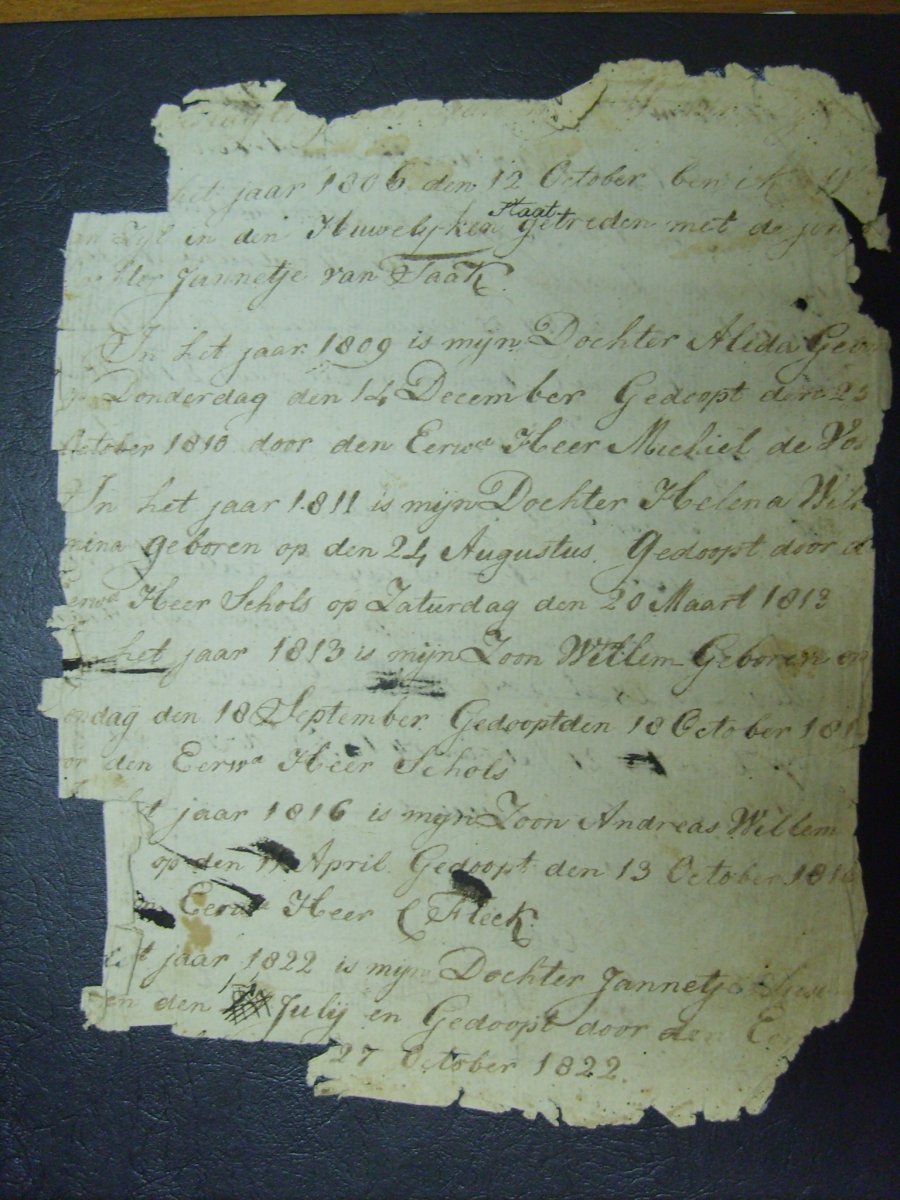 het jaar 1806 den 12 October ben ik
in den Huwelyken Staat getreden met de jon
Jannetje van Taak.
In het jaar 1809 is mijn Dochter Alida Geb
Donderdag den 14 December Gedoopt den 25
October 1810 door den Eerwe Heer Michiel de Vos
In het jaar 1811 is mijn Dochter Helena Wil
mina geboren op den 24 Augustus. Gedoopt door d
Eerwe Heer Schols op Zaturdag den 20 Maart 1813
In het jaar 1813 is mijn Zoon Willem Geboren op
ondag den 18 September Gedoopt den 18 October 181
or den Eerwe Heer Schols
t jaar 1816 is mijn Zoon Andreas Willem
op den 11 April. Gedoopt den 13 October 1816
Eerwe Heer C Fleck.
et jaar 1822 is mijn Dochter Jannetje
en den July en Gedoopt door den E
27 October 1822.